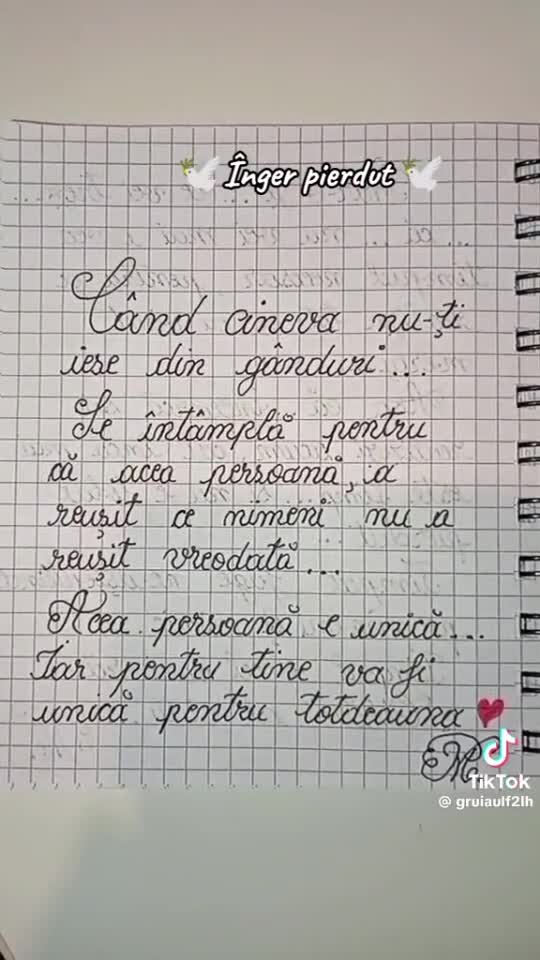 🕊️ Înger pierdut 🕊️
Când cineva nu-ți
iese din gânduri...
Se întâmplă pentru
că acea persoană, a
reușit ce nimeni nu a
reușit vreodată...
Acea persoană e unică...
Iar pentru tine va fi
unică pentru totdeauna
TikTok
@ gruiaulf2lh